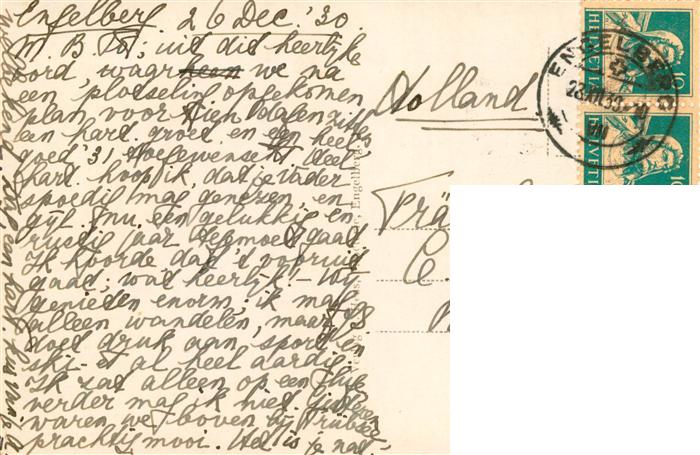 Engelberg. 26 Dec. '30.
M. B. To; uit dit heerlijke
oord, waar heen we na
een plotseling opgekomen
plan voor tien dagen zitten
een hart. groet en een heel
goed '31 toegewenscht. Heel
hart. hoop ik, dat je vader
spoedig mag genezen, en
gij nu een gelukkig en
rustig jaar tegemoet gaat
Ik hoorde dat 't vooruit
gaat, wat heerlijk! – Wij
genieten enorm; ik mag
alleen wandelen, maar
doet druk aan sport en
ski-et al heel aardig.
Ik zat alleen op een
verder mag ik niet. Gisteren
waren we boven bij Trübsee
prachtig mooi. Het is je nat-
Holland
Prä
C.
ENGELBERG
26.XII.30
VIII
HELVETIA
10
HELVETIA
10
Engelberg